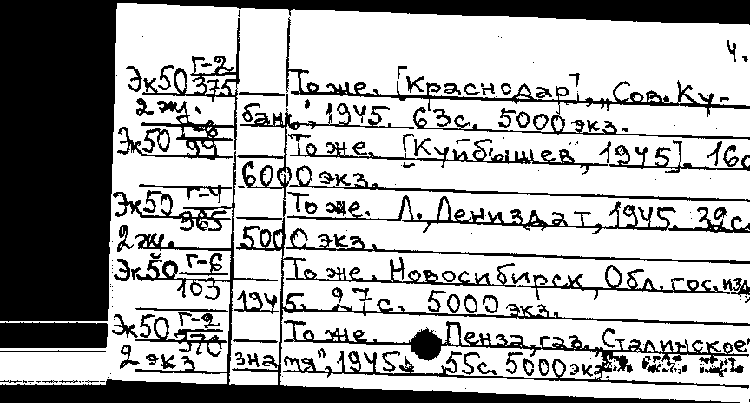 4.
Эк50 Г-2/375 То же. [Краснодар], „Сов. Ку-
2 экз. бань", 1945. 63с. 5000 экз.
Эк50 99 То же. [Куйбышев, 1945]. 16с
6000 экз.
Эк50 Г-4/365 То же. Л., Лениздат, 1945. 32с.
2 экз. 5000 экз.
Эк50 Г-6/103 То же. Новосибирск, Обл. гос. изд,
1945. 27с. 5000 экз.
Эк50 Г-2/370 То же. Пенза, газ. „Сталинское
2 экз знамя", 1945. 55с. 5000 экз.